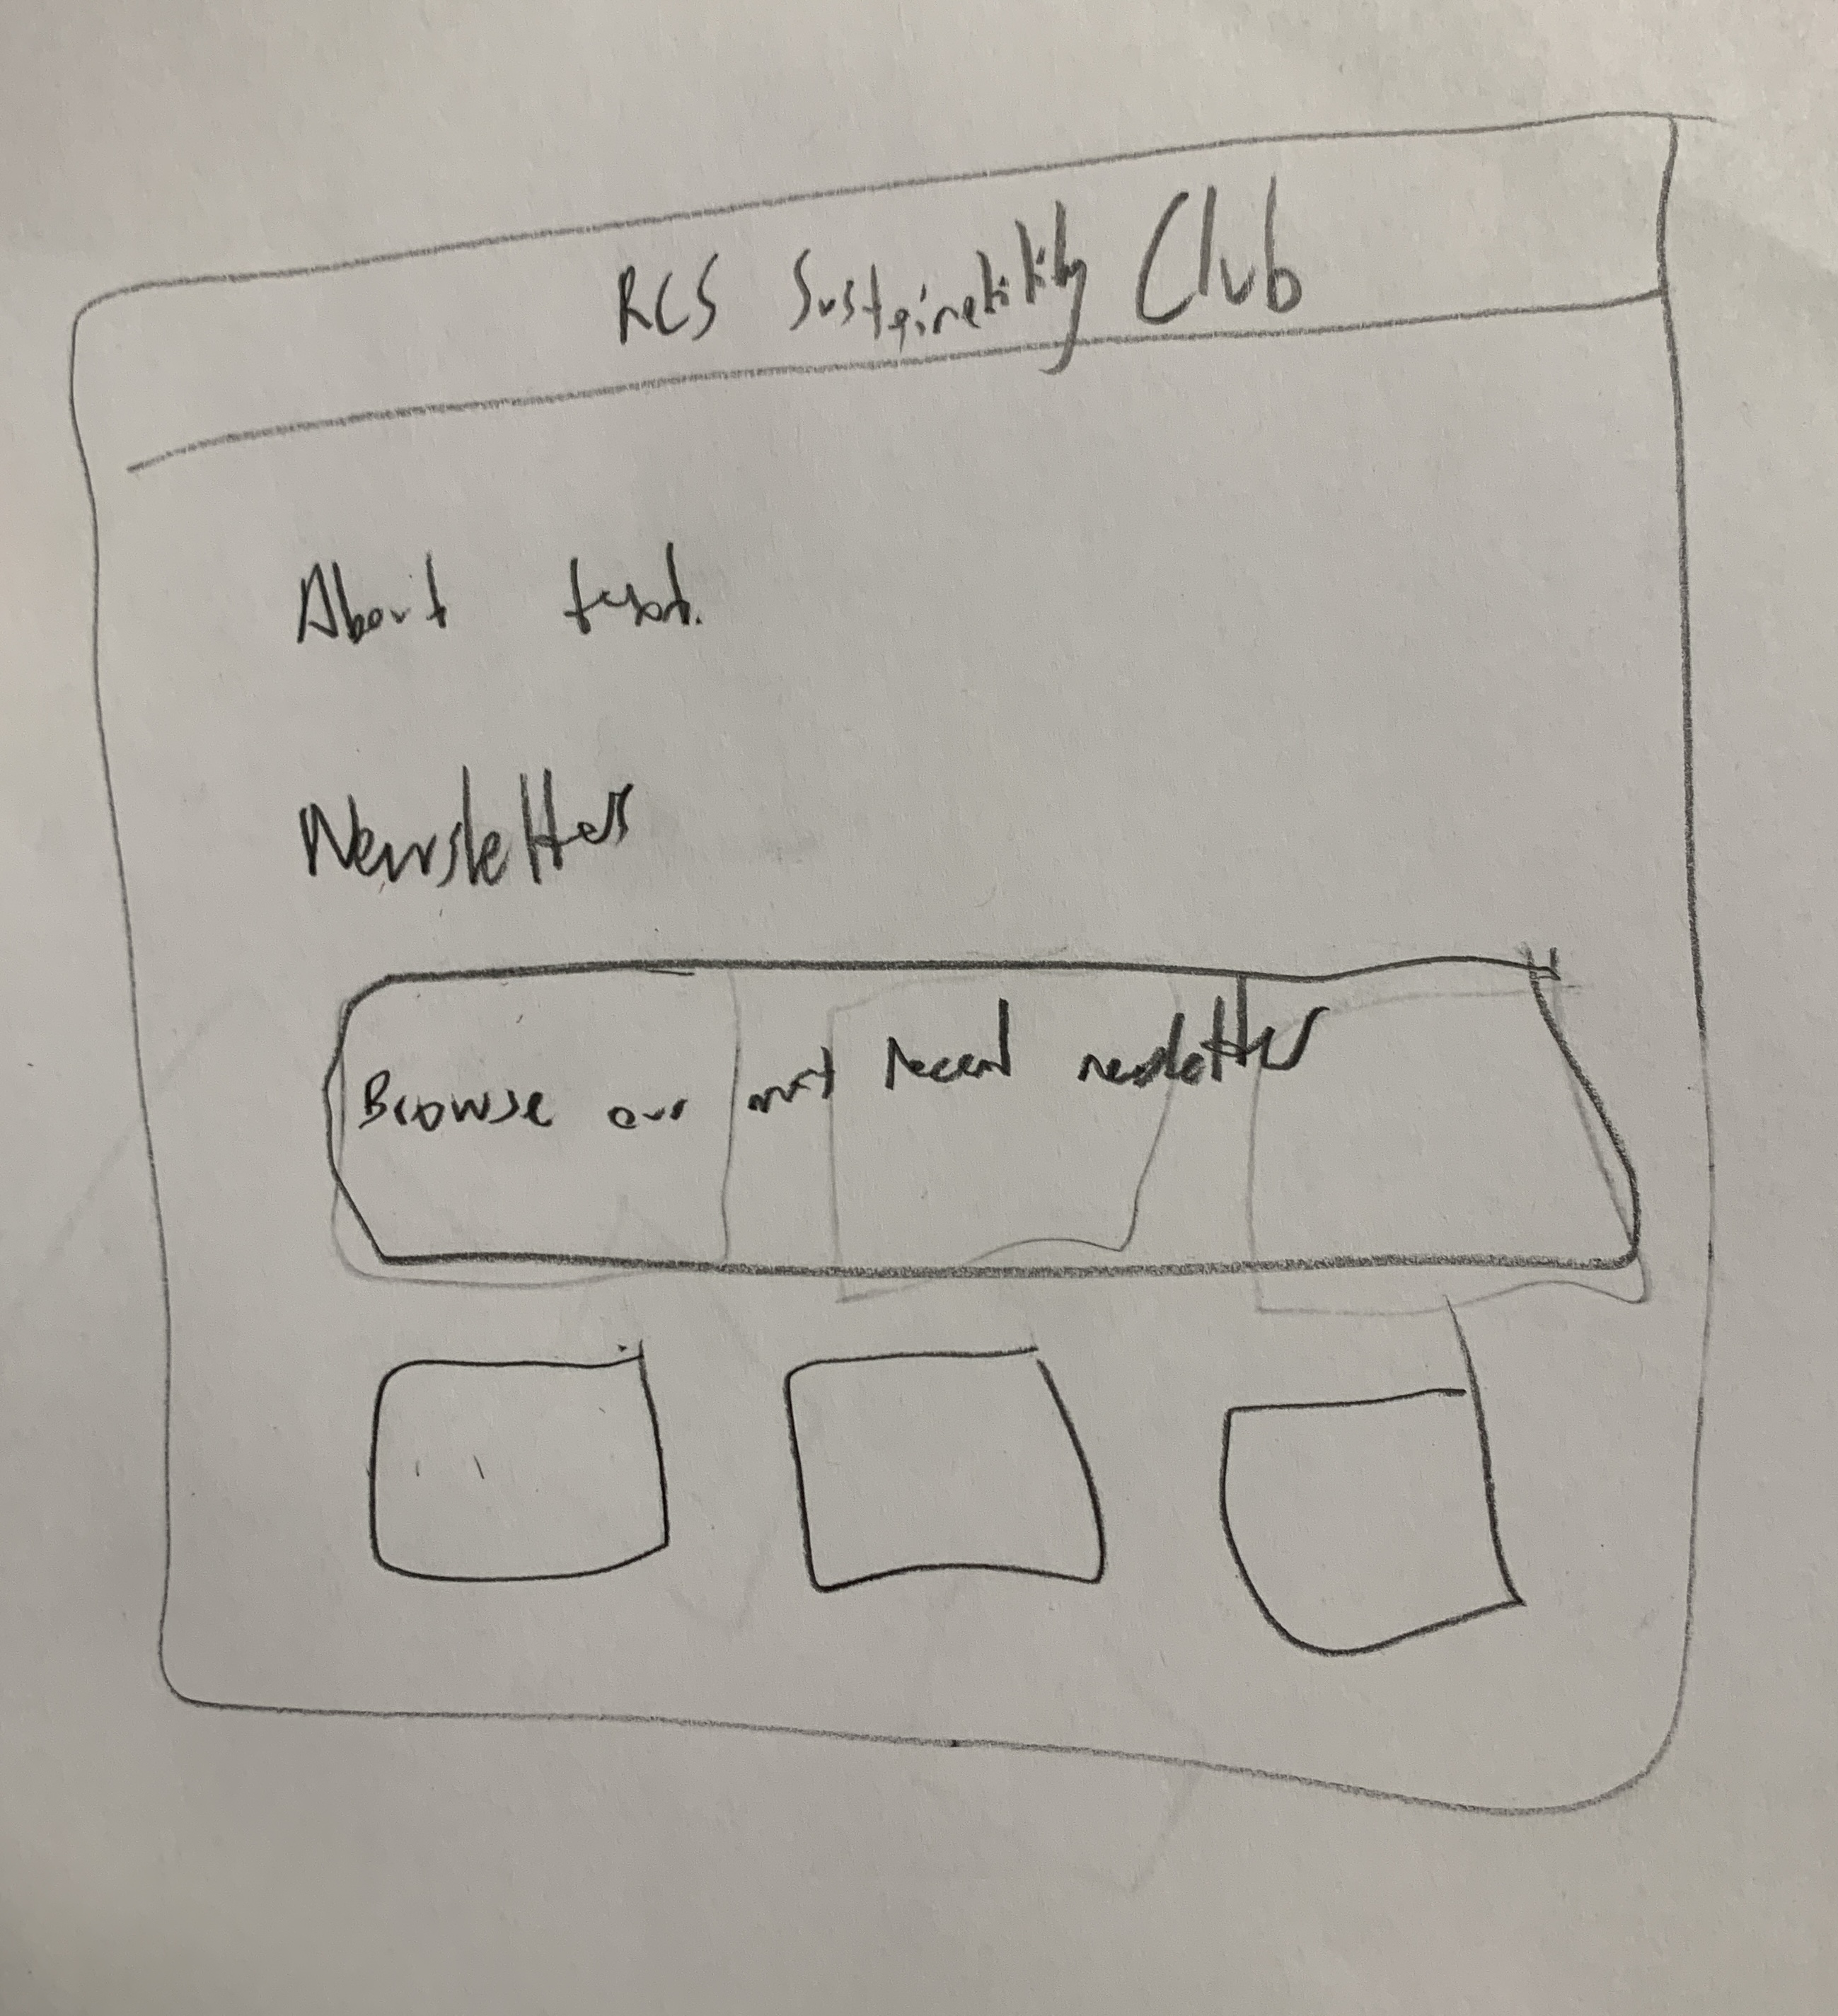 RCS Sustainability Club
About text.
Newsletter
Browse our most recent newsletter